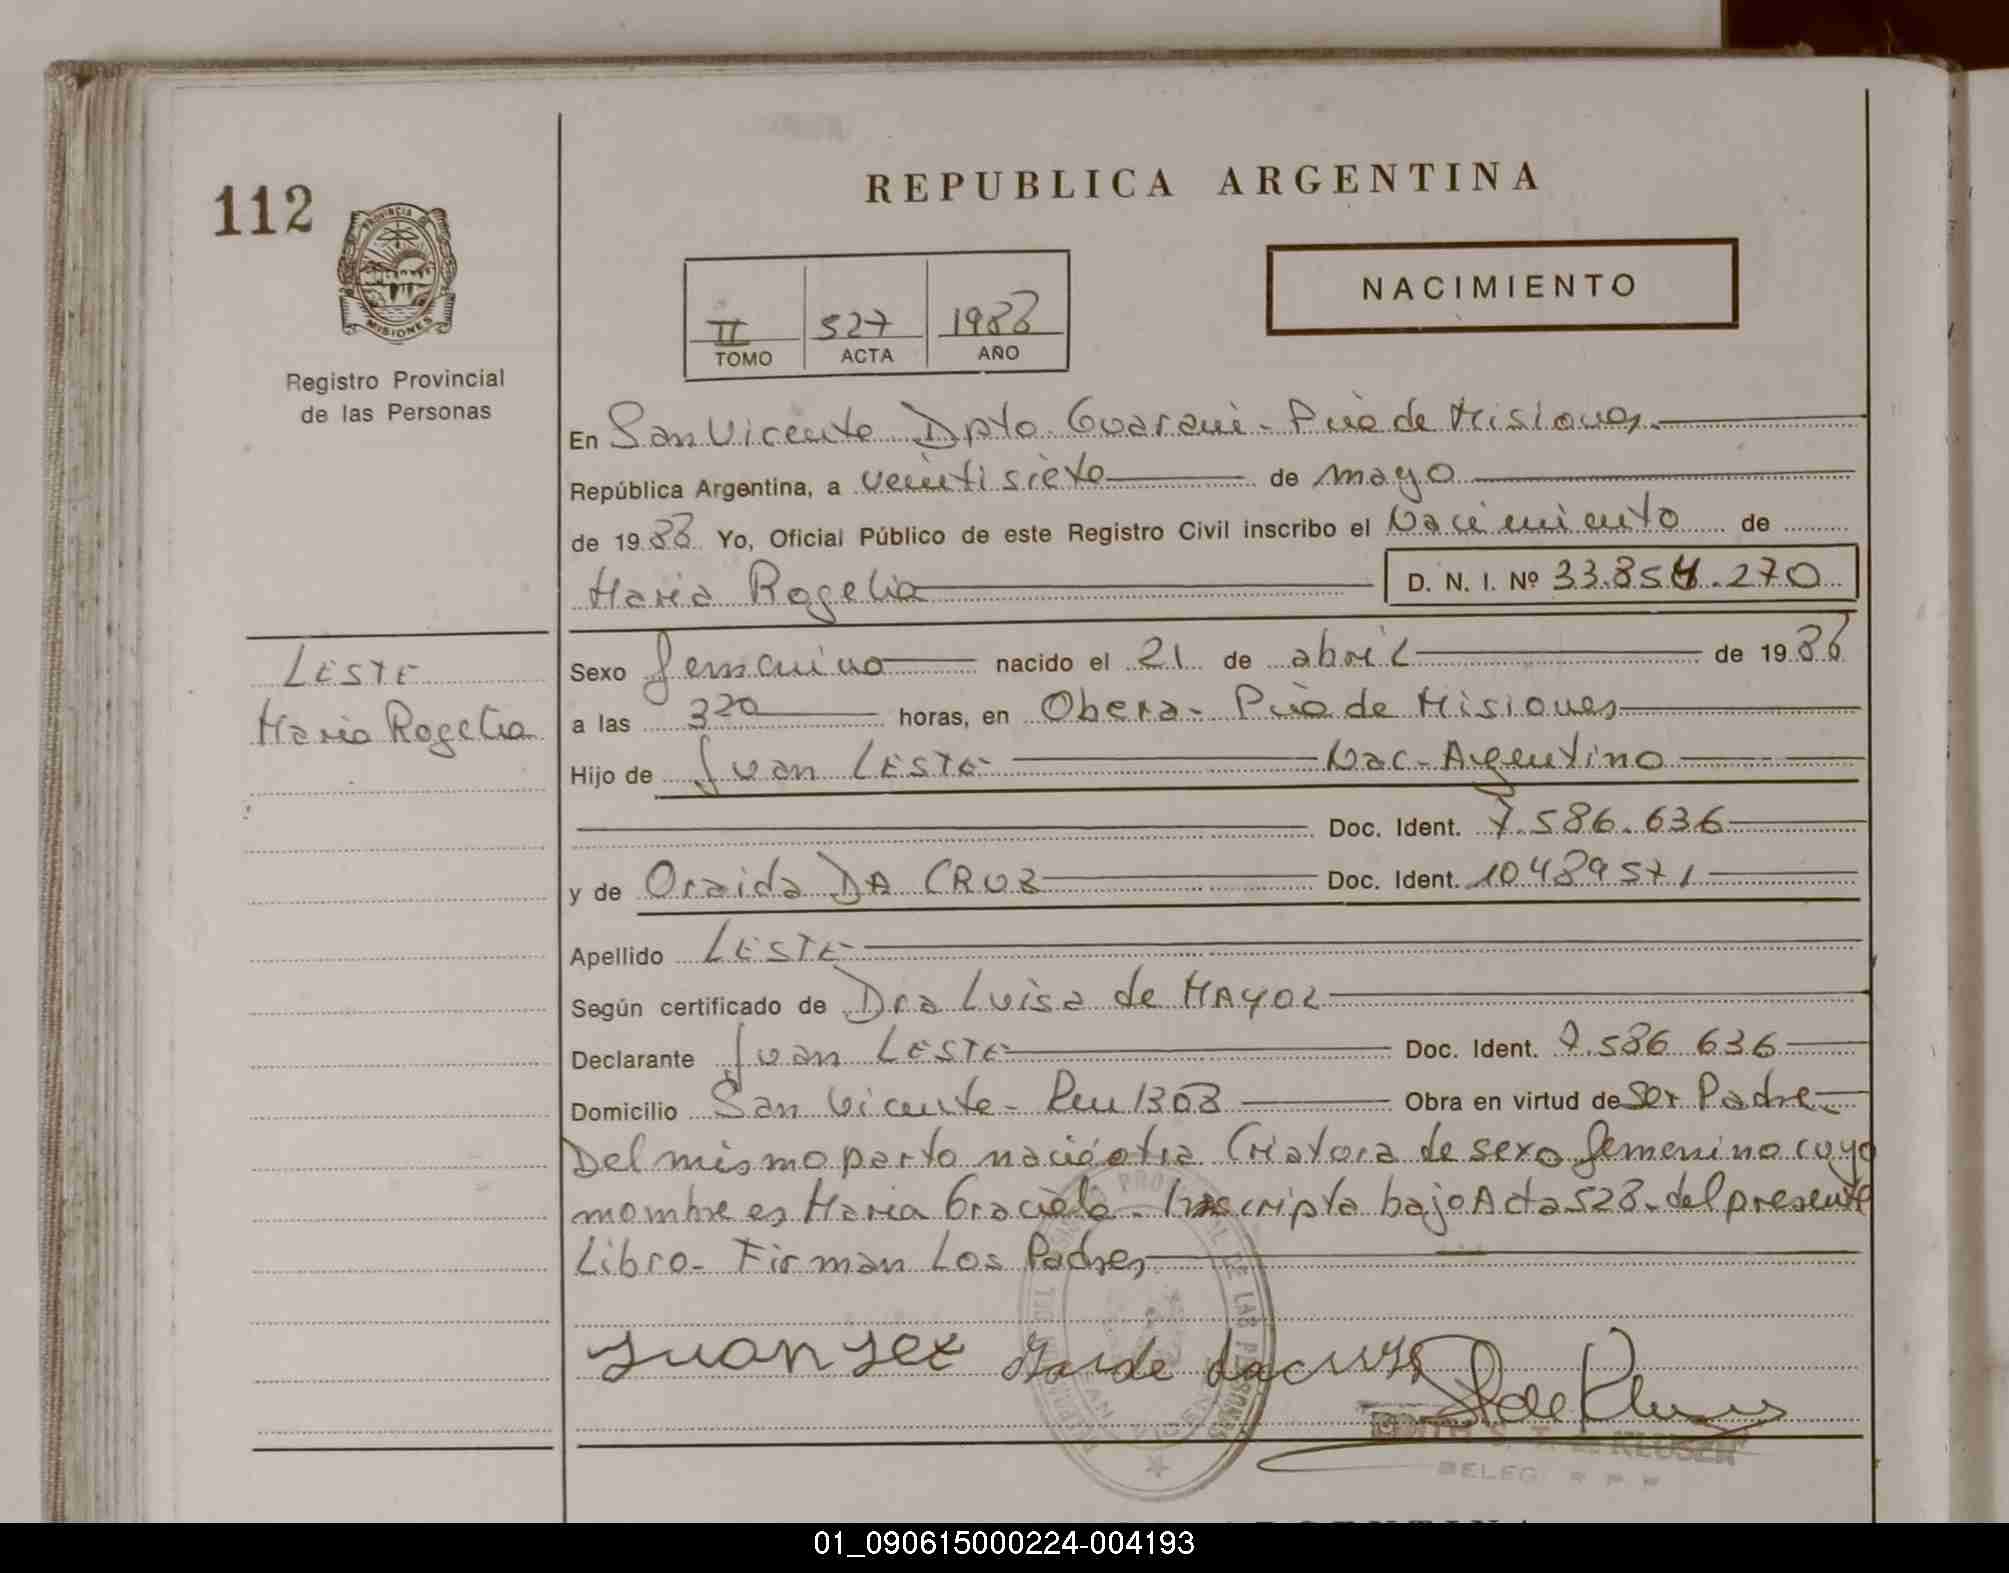 112
PROVINCIA DE
MISIONES
Registro Provincial
de las Personas
REPUBLICA ARGENTINA
NACIMIENTO
II 527 1988
TOMO ACTA AÑO
En San Vicente Dpto. Guarani - Pcia de Misiones.
República Argentina, a veintisiete de mayo
de 1988 Yo, Oficial Público de este Registro Civil inscribo el Nacimiento de
Maria Rogelia D. N. I. Nº 33.854.270
LESTE
Maria Rogelia
Sexo femenino nacido el 21 de abril de 1988
a las 3 20 horas, en Obera - Pcia de Misiones
Hijo de Juan LESTE Nac - Argentino
Doc. Ident. 7.586.636
y de Oraida DA CRUZ Doc. Ident. 10489571
Apellido LESTE
Según certificado de Dra Luisa de MAYOL
Declarante Juan LESTE Doc. Ident. 7.586 636
Domicilio San Vicente - 1308 Obra en virtud de Ser Padre
Del mismo parto nació otra Criatura de sexo femenino cuyo
nombre es Maria Graciela - Inscripta bajo Acta 528 - del presente
Libro - Firman Los Padres
Juan da cruz
de KLUSER
DELEG. R P P
01_090615000224-004193